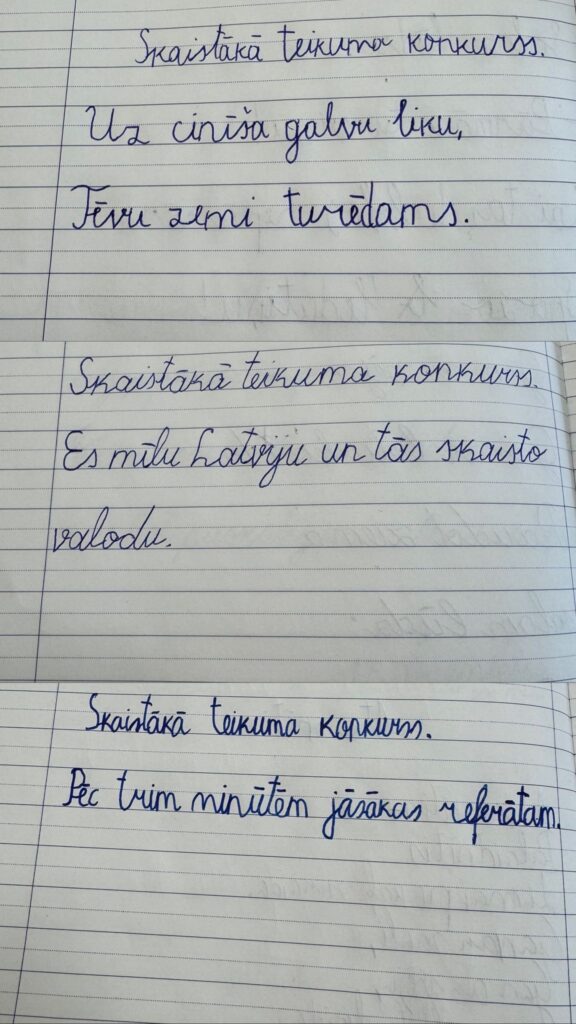 Skaistākā teikuma konkurss.
Uz ciņīša galvu liku,
Tēvu zemi turēdams.
Skaistākā teikuma konkurss.
Es mīlu Latviju un tās skaisto
valodu.
Skaistākā teikuma konkurss.
Pēc trim minūtēm jāsākas referātam.